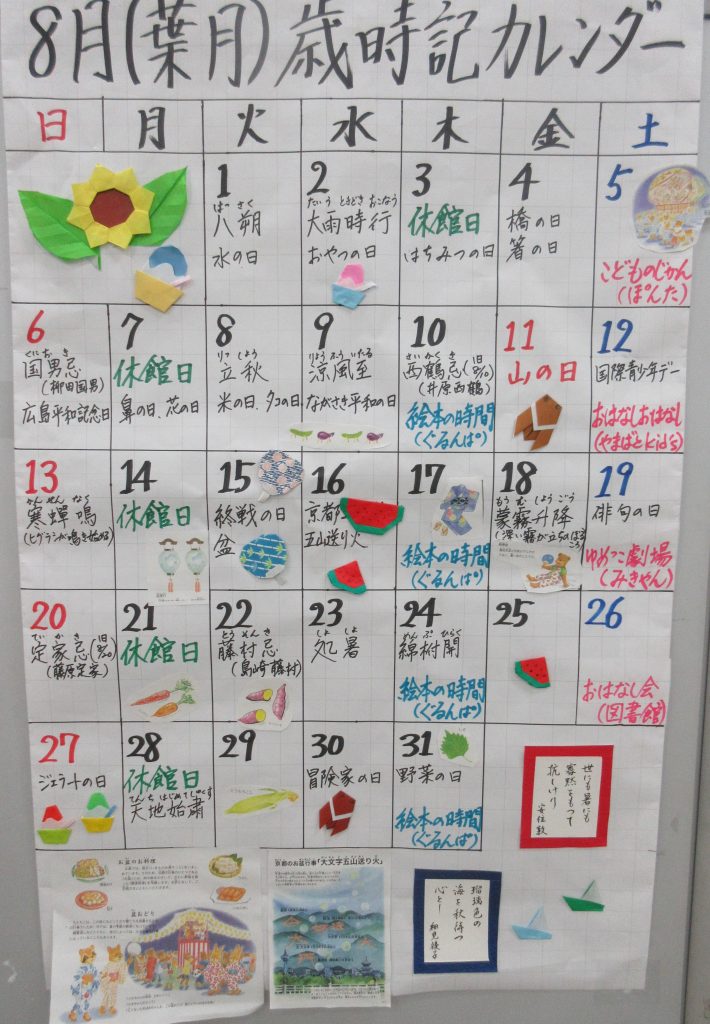 8月(葉月)歳時記カレンダー
日 月 火 水 木 金 土
1
はっさく
八朔
水の日
2
たいうときどきおこなう
大雨時行
おやつの日
3
休館日
はちみつの日
4
橋の日
箸の日
5
こどものじかん
(ぽんた)
6
くにおき
国男忌
(柳田国男)
広島平和記念日
7
休館日
鼻の日、花の日
8
りっしゅう
立秋
米の日、タコの日
9
りょうふういたる
涼風至
ながさき平和の日
10
さいかくき
西鶴忌(旧8/10)
(井原西鶴)
絵本の時間
(ぐるんぱ)
11
山の日
12
国際青少年デー
おはなしおはなし
(やまばとkid's)
13
かんせんなく
寒蟬鳴
(ヒグラシが鳴き始める)
14
休館日
15
終戦の日
盆
16
京都
五山送り火
17
絵本の時間
(ぐるんぱ)
18
もうむしょうごう
蒙霧升降
(深い霧が立ちのぼるころ)
19
俳句の日
ゆめっこ劇場
(みきゃん)
20
ていかき
定家忌(旧8/20)
(藤原定家)
21
休館日
22
とうそんき
藤村忌
(島崎藤村)
23
しょしょ
処暑
24
めんぷひらく
綿柎開
絵本の時間
(ぐるんぱ)
25
26
おはなし会
(図書館)
27
ジェラートの日
28
休館日
てんちはじめてしゅくす
天地始粛
29
とうもろこし
30
冒険家の日
31
野菜の日
絵本の時間
(ぐるんぱ)
世にも暑にも
寡黙をもつて
抗しけり
安住敦
瑠璃色の
海を秋待つ
心とし
細見綾子
お盆のお料理
盆おどり
京都のお盆行事「大文字五山送り火」